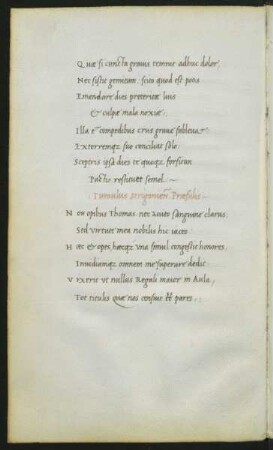 Quæ si cuncta prius temnit adhuc dolor,
Nec sistit gemitum: scin quod est potis
Emendare dies preteritæ luis
Et culpæ mala nexiæ.
Illa e compedibus crus graue
Extorremq; suo conciliat solo.
Sceptris ipsa dies te quoq; forsitan
Pacto restituet semel.
Tumulus Strigonien. Præsulis.
Non opibus Thomas, nec auito sanguine clarus
Sed virtute mea nobilis hic iaceo.
Hæc et opes, hæcq; una simul congessit honores.
Inuidiamq; omnem me superare dedit
Vixerit ut nullus Regali maior in Aula,
Tot titulis quæ nos census